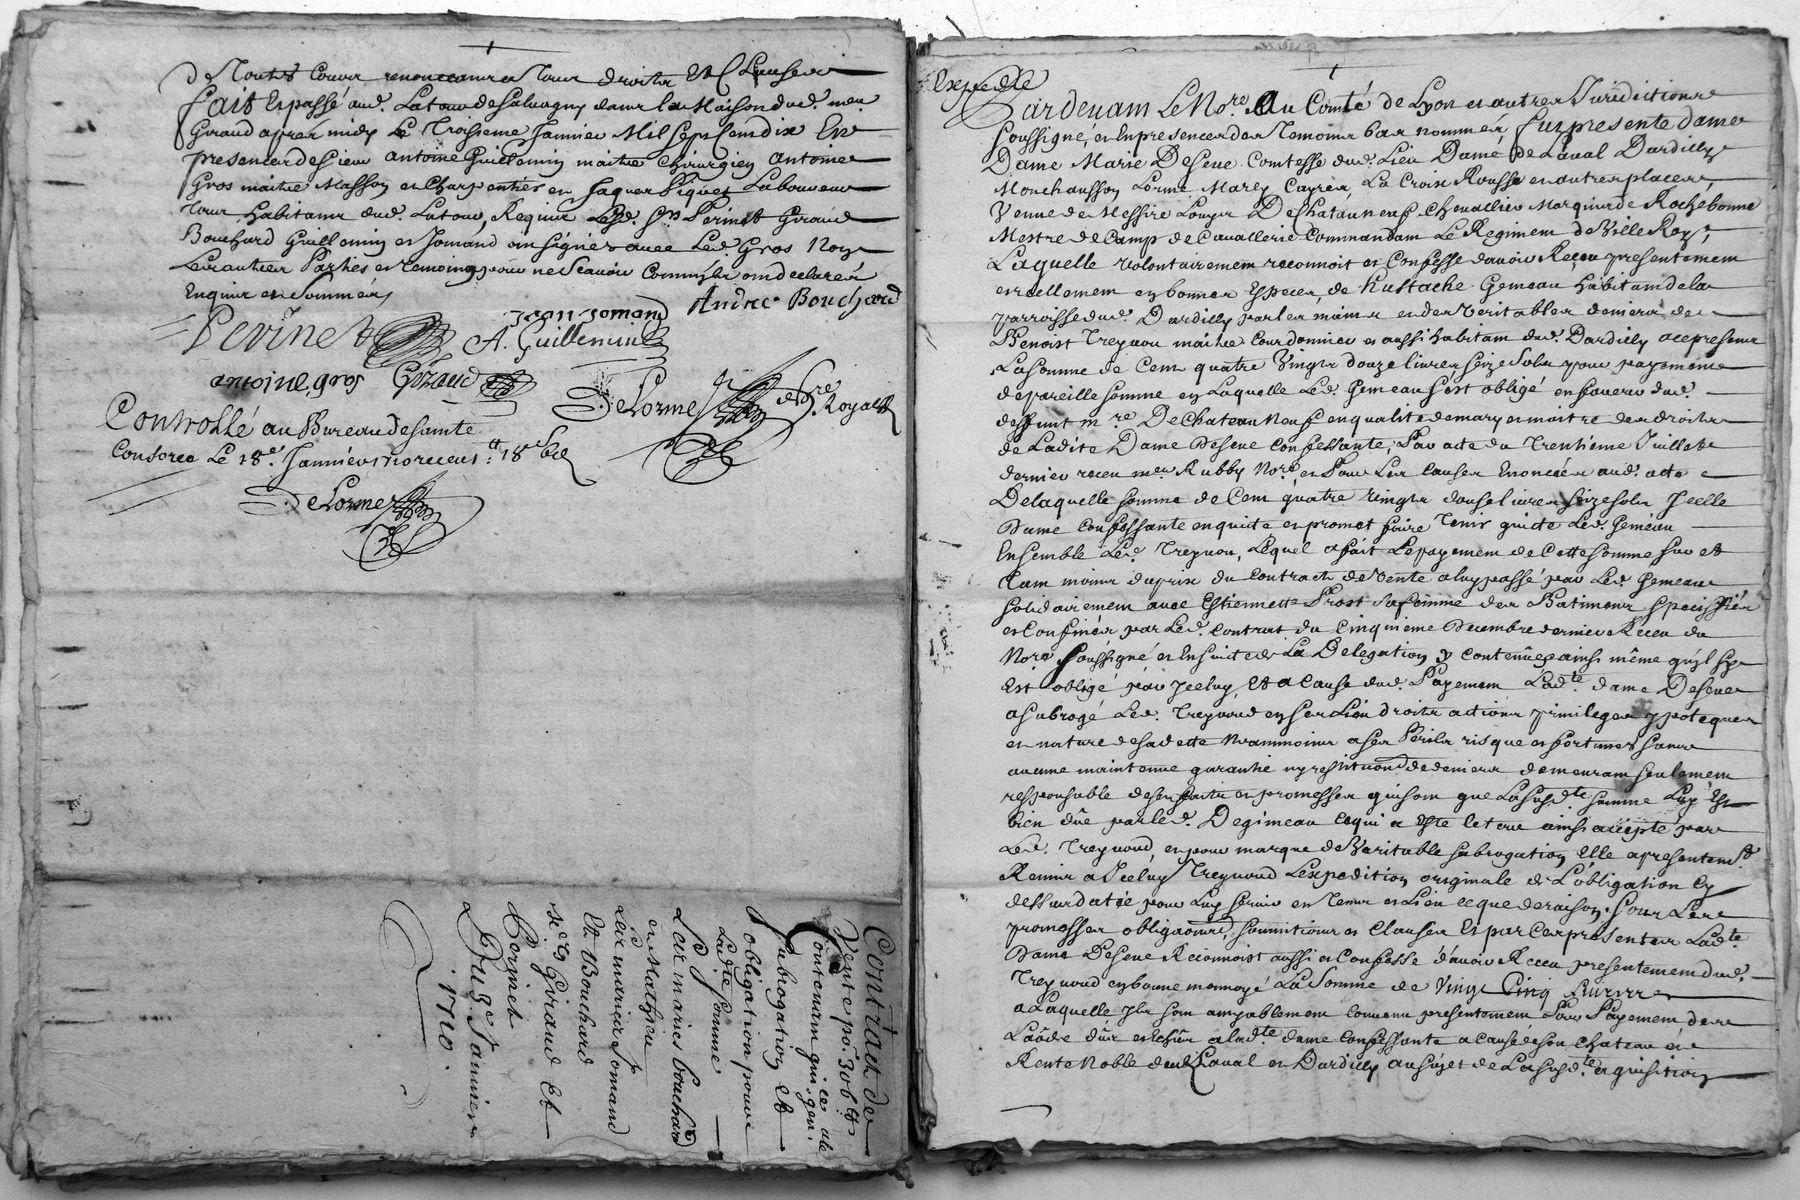 De Toutes Cours renonceant a Tous droits Et Clauses
fait Et passé aud. Latour de Salvagny dans la Maison dud. me.
Giraud apres midy Le Troisieme Janvier Mil Sept Cent dix En
presences de Sieur antoine Guillemin maitre Chirurgien antoine
Gros maitre Masson et Charpentier en Jaques Piquet Laboureur
Tous habitans dud. Latour, Requis Led. Sr Perinet Giraud
Bouchard Guillemin et Jomand ont signés avec Led. Gros Non
Les autres Parties et temoing pour ne Scavoir comm ont declarer
Enquis et Sommés
jean jomand Andre Bouchard
Perinet A. Guillemin
antoine gros Giraud
DeLorme Nre Royal
Controllé au Bureau de sainte
Consorce Le 18e. Janvier 1710 receu
DeLorme
Contract de
Vente po. 306 lt
Contenant quittance
subrogation Et
obligation pour
Ladte somme
Les maries bouchard
et Mathieu
Les maries Jomand
Et Bouchard
Srs Giraud Et
Perinet
Du 3e. Janvier
1710.
Expedié
Pardevant Le Nore. Au Comté de Lyon et autres Juridictions
soussigné, et En presence des Temoins bas nommés, fut presente dame
Dame Marie De Seve Comtesse dud. Lieu Dame de Laval Dardilly
Monchausson, Lorme Marly Cayres, La Croix Rousse et autres places,
Veuve de Messire Louys De Chataunenf Chevallier Marquis de Rochebonne
Mestre de Camp de Cavallerie Commandant Le Regiment de Ville Roy;
Laquelle volontairement reconnoit et Confesse d'avoir Receu presentement
et reellement en bonnes Especes, de Eustache Gemeau habitant de la
parroisse dud. Dardilly par les mains et des veritables deniers de
Benoist Treynou maitre Courdonnier et aussi habitant dud. Dardilly ace present
La somme de Cent quatre Vingts douze livres seize Sols pour payement
de pareille somme en Laquelle Led. Gemeau s'est obligé en faveur dud.
deffunt mre. De Chateau Neuf en qualité de mary et maitre des droits
de Ladite Dame De Seve Confessante, Par acte du Trentieme Juillet
dernier receu me. Rubby Nore. et Pour Les causes Enoncées aud. acte
De laquelle somme de Cent quatre vingts douse livres seize sols Icelle
Dame Confessante en quitte et promet faire Tenir quitte Led. Gemeau
Ensemble Led. Treynou, Lequel a fait Le payement de Cette somme sur et
Tant moins du prix du Contract de Vente a luy passé par Led. Gemeau
solidairement avec Estiennette Prost sa femme des Batiments specifiés
et Confinés par Led. Contrat du Cinquieme Decembre dernier Receu du
Nore soussigné et En suite de La Delegation y contenüe et ainsi même qu'il s'y
Est obligé par Iceluy, Et a Cause dud. Payement Ladte. dame De Seve
a subrogé Led. Treynoud en ses Lieu droits actions privileges ypoteques
et nature de sa dette Neammoins a ses Perils risques et fortunes sans
aucune maintenue garantie ny restitution de deniers demeurant seulement
responsable de ses faits et promesses qui sont que La susdte. somme Luy Est
bien düe par led. Degimeau ce qui a Esté ainsi accepté par
Led. Treynoud, et pour marque de Veritable subrogation Elle a presentemt
Remis a Iceluy Treynoud L'expedition originale de L'obligation cy
dessus datée pour Luy servir et Tenir et Lieu ce que de raison, sous Les
promesses obligations, soumitions et Clauses Et par Ces presentes Ladte
Dame De Seve Reconnoist aussi et Confesse d'avoir Receu presentement dud.
Treynoud en bonne monnoye La Somme de Vingt Cinq Livres
a Laquelle Ils sont amyablement Convenu presentement Pour Payement des
Laods düs et échüs a ladte. dame Confessante a Cause de son Chateau et
Rente Noble de Laval et Dardilly au sujet de La susdte. aquisition